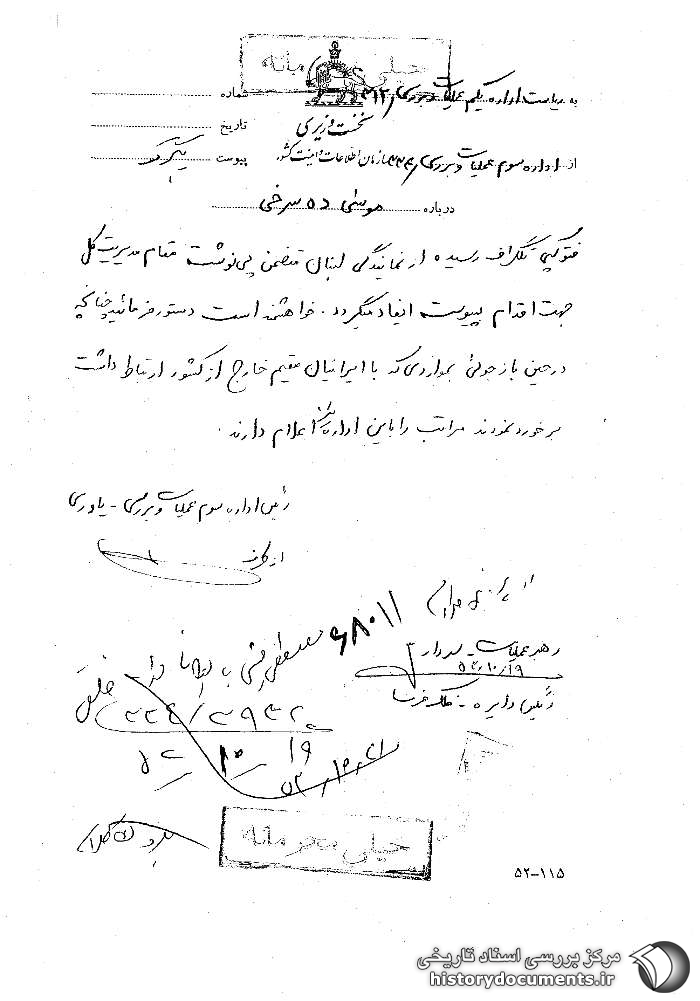 خیلی محرمانه
به ریاست اداره یکم عملیات و بررسی ۳۱۲
شماره
نخست وزیری
تاریخ
از اداره سوم عملیات و بررسی ۳۳۴
سازمان اطلاعات و امنیت کشور
پیوست
درباره موسی ده سرخی
فتوکپی تلگراف رسیده از نمایندگی لبنان متضمن پی‌نوشت مقام مدیریت کل
جهت اقدام به پیوست ایفاد میگردد. خواهشمند است دستور فرمائید چنانچه
در حین بازجوئی بمواردی که با ایرانیان مقیم خارج از کشور ارتباط داشت
برخورد نمودند مراتب را باین اداره اعلام دارند.
رئیس اداره سوم عملیات و بررسی - یاوری
از طرف
۶۸۰۱۱
رهبر عملیات
۵۲/۱۰/۱۹
رئیس دایره
۳۳۴/۲۹۳۲
۱۹
۱۰
۵۲
۵۲/۱۰/۲۱
خیلی محرمانه
۵۲-۱۱۵
مرکز بررسی اسناد تاریخی
historydocuments.ir